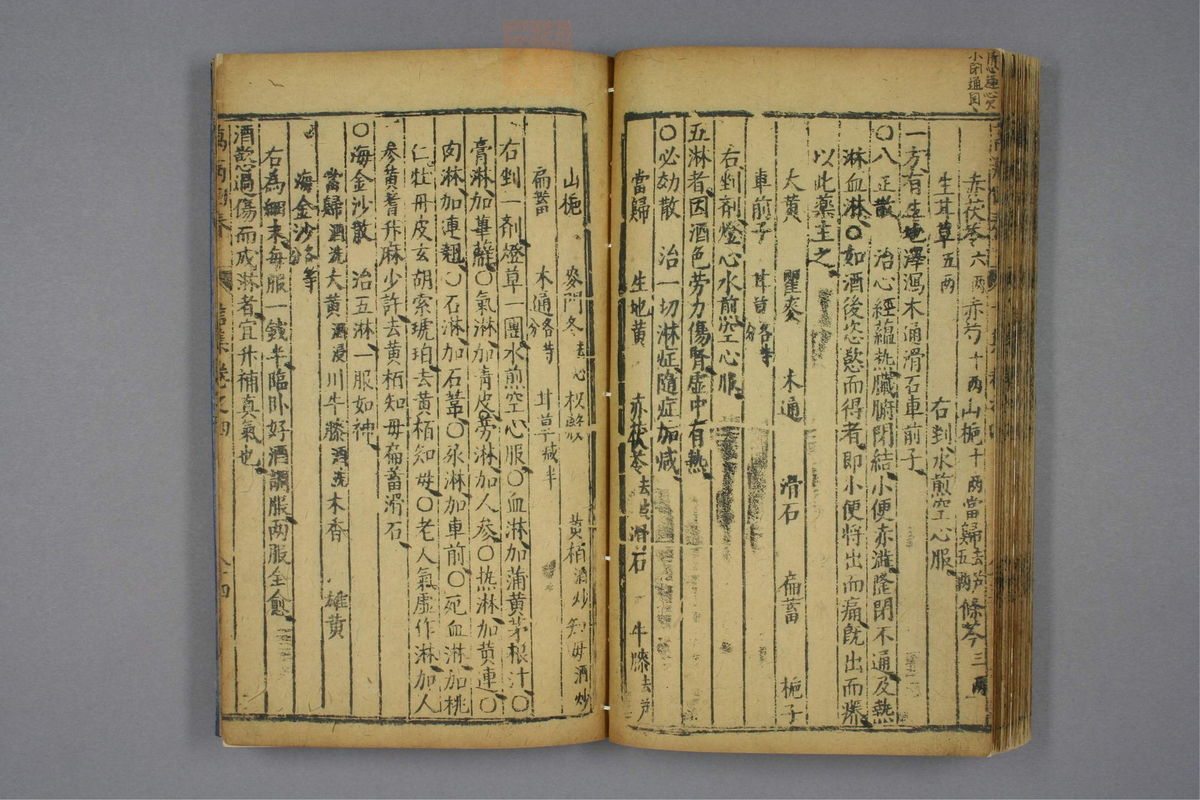 赤茯苓六兩 赤芍十兩 山梔十兩 當歸去芦五兩 條芩三兩
生甘草五兩 右剉水煎空心服
一方有生地澤瀉木通滑石車前子
○八正散 治心經蘊热臟腑閉結小便赤澁癃閉不通及熱
淋血淋○如酒後恣慾而得者即小便將出而痛既出而痒
以此藥主之
大黃 瞿麥 木通 滑石 扁蓄 梔子
車前子 甘草各等分
右剉一劑燈心水煎空心服
五淋者因酒色勞力傷腎虛中有熱
○必効散 治一切淋症隨症加减
當歸 生地黃 赤茯苓去皮 滑石 牛膝去芦
山梔 麥門冬去心 枳殼 黃栢酒炒 知母酒炒
扁蓄 木通各等分 甘草减半
右剉一劑燈草一團水煎空心服○血淋加蒲黃茅根汁○
膏淋加萆薢○氣淋加青皮○勞淋加人參○热淋加黃連○
肉淋加連翹○石淋加石葦○尿淋加車前○死血淋加桃
仁牡丹皮玄胡索琥珀去黃栢知母○老人氣虛作淋加人
參黃蓍升麻少許去黃栢知母扁蓄滑石
○海金沙散 治五淋一服如神
當歸酒洗 大黃酒浸 川牛膝酒洗 木香 雄黃
海金沙各等分
右為細末每服一錢半臨卧好酒調服兩服全愈
酒慾過傷而成淋者宜升補真氣也